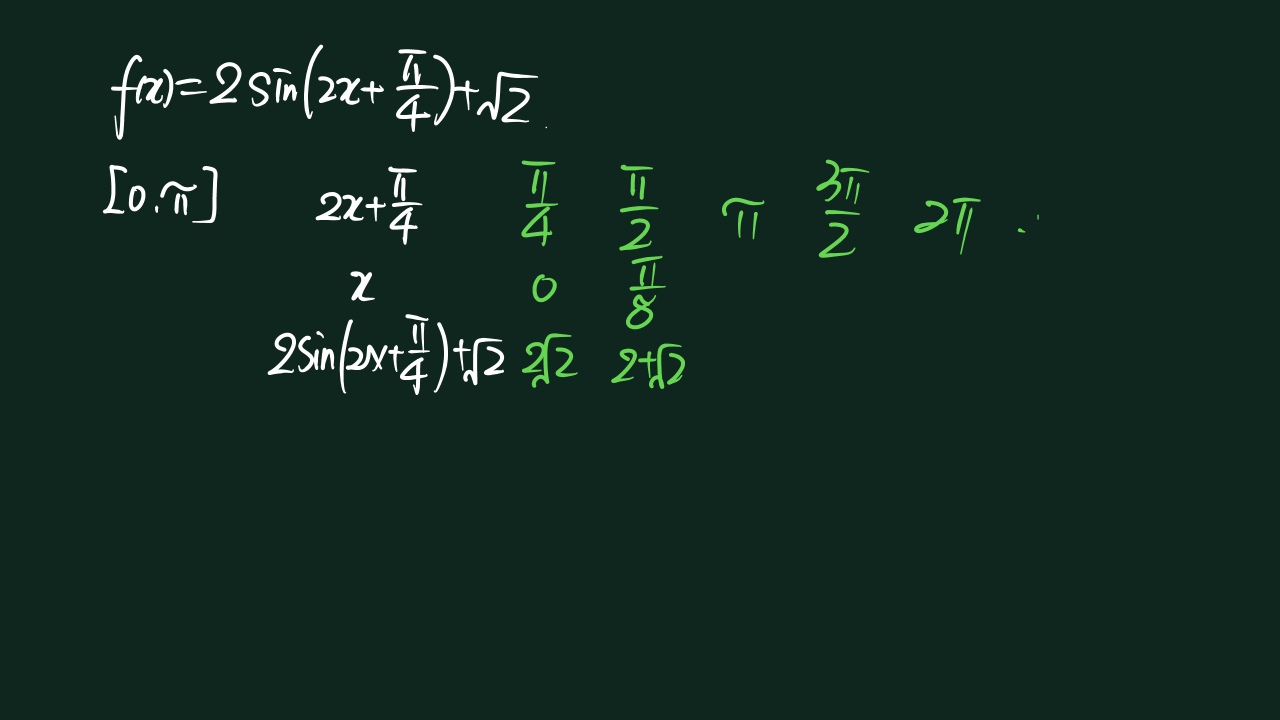 f(x)=2sin(2x+π/4)+√2
[0.π] 2x+π/4 π/4 π/2 π 3π/2 2π
x 0 π/8
2sin(2x+π/4)+√2 2√2 2+√2